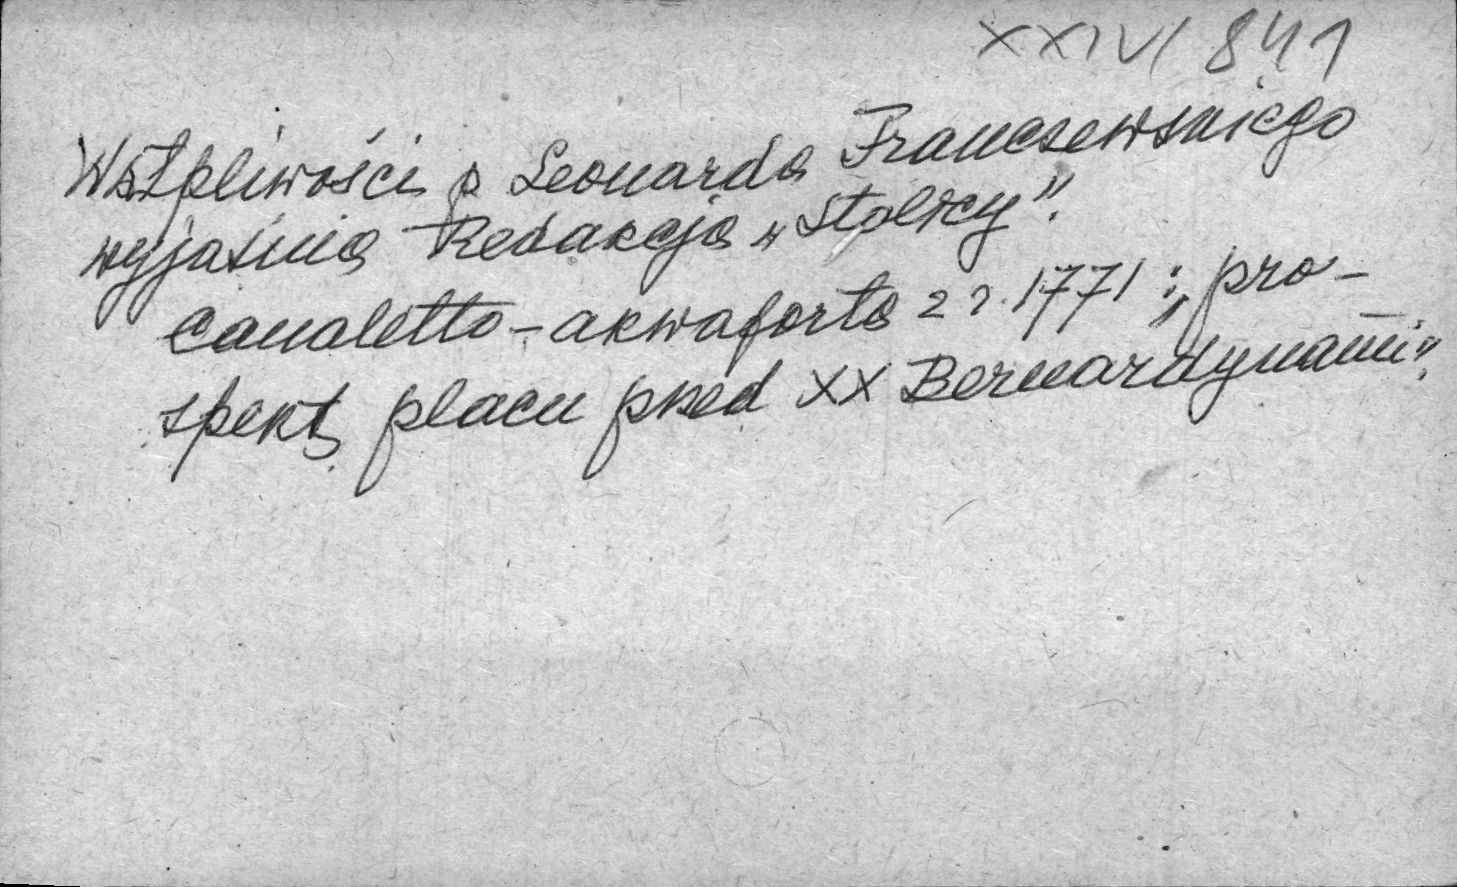 XXIV/841
Wątpliwości p Leonarda Franczewskiego
wyjaśnia Redakcja „Stolicy".
Canaletto - akwaforta z r. 1771 : „pro-
spekt placu przed XX Bernardynami".